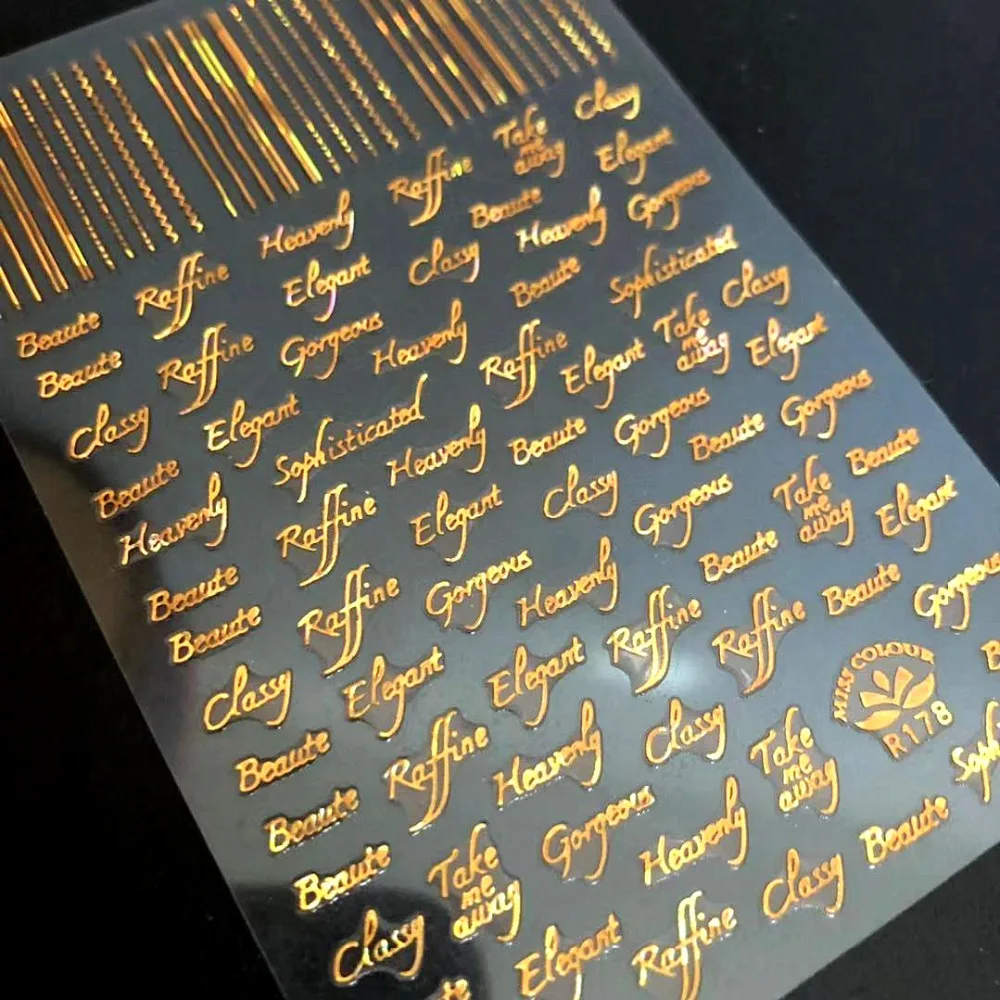 Take me away Classy
Raffine Beaute Elegant
Heavenly Classy Heavenly Gorgeous
Raffine Elegant Beaute Sophisticated
Beaute Gorgeous Heavenly Raffine Take me away Classy
Beaute Raffine Elegant Elegant
Classy Elegant Sophisticated Heavenly Beaute Gorgeous Beaute Gorgeous
Beaute Raffine Elegant Classy Gorgeous Take me away Beaute
Heavenly Gorgeous Heavenly Beaute Elegant
Beaute Raffine Elegant Raffine Raffine Beaute Gorgeous
Beaute Elegant
Classy Raffine Heavenly Classy Take me away MISS COLOUR
R178
Beaute
Beaute Gorgeous Heavenly Beaute
Beaute Take me away Raffine Classy
Classy Elegant